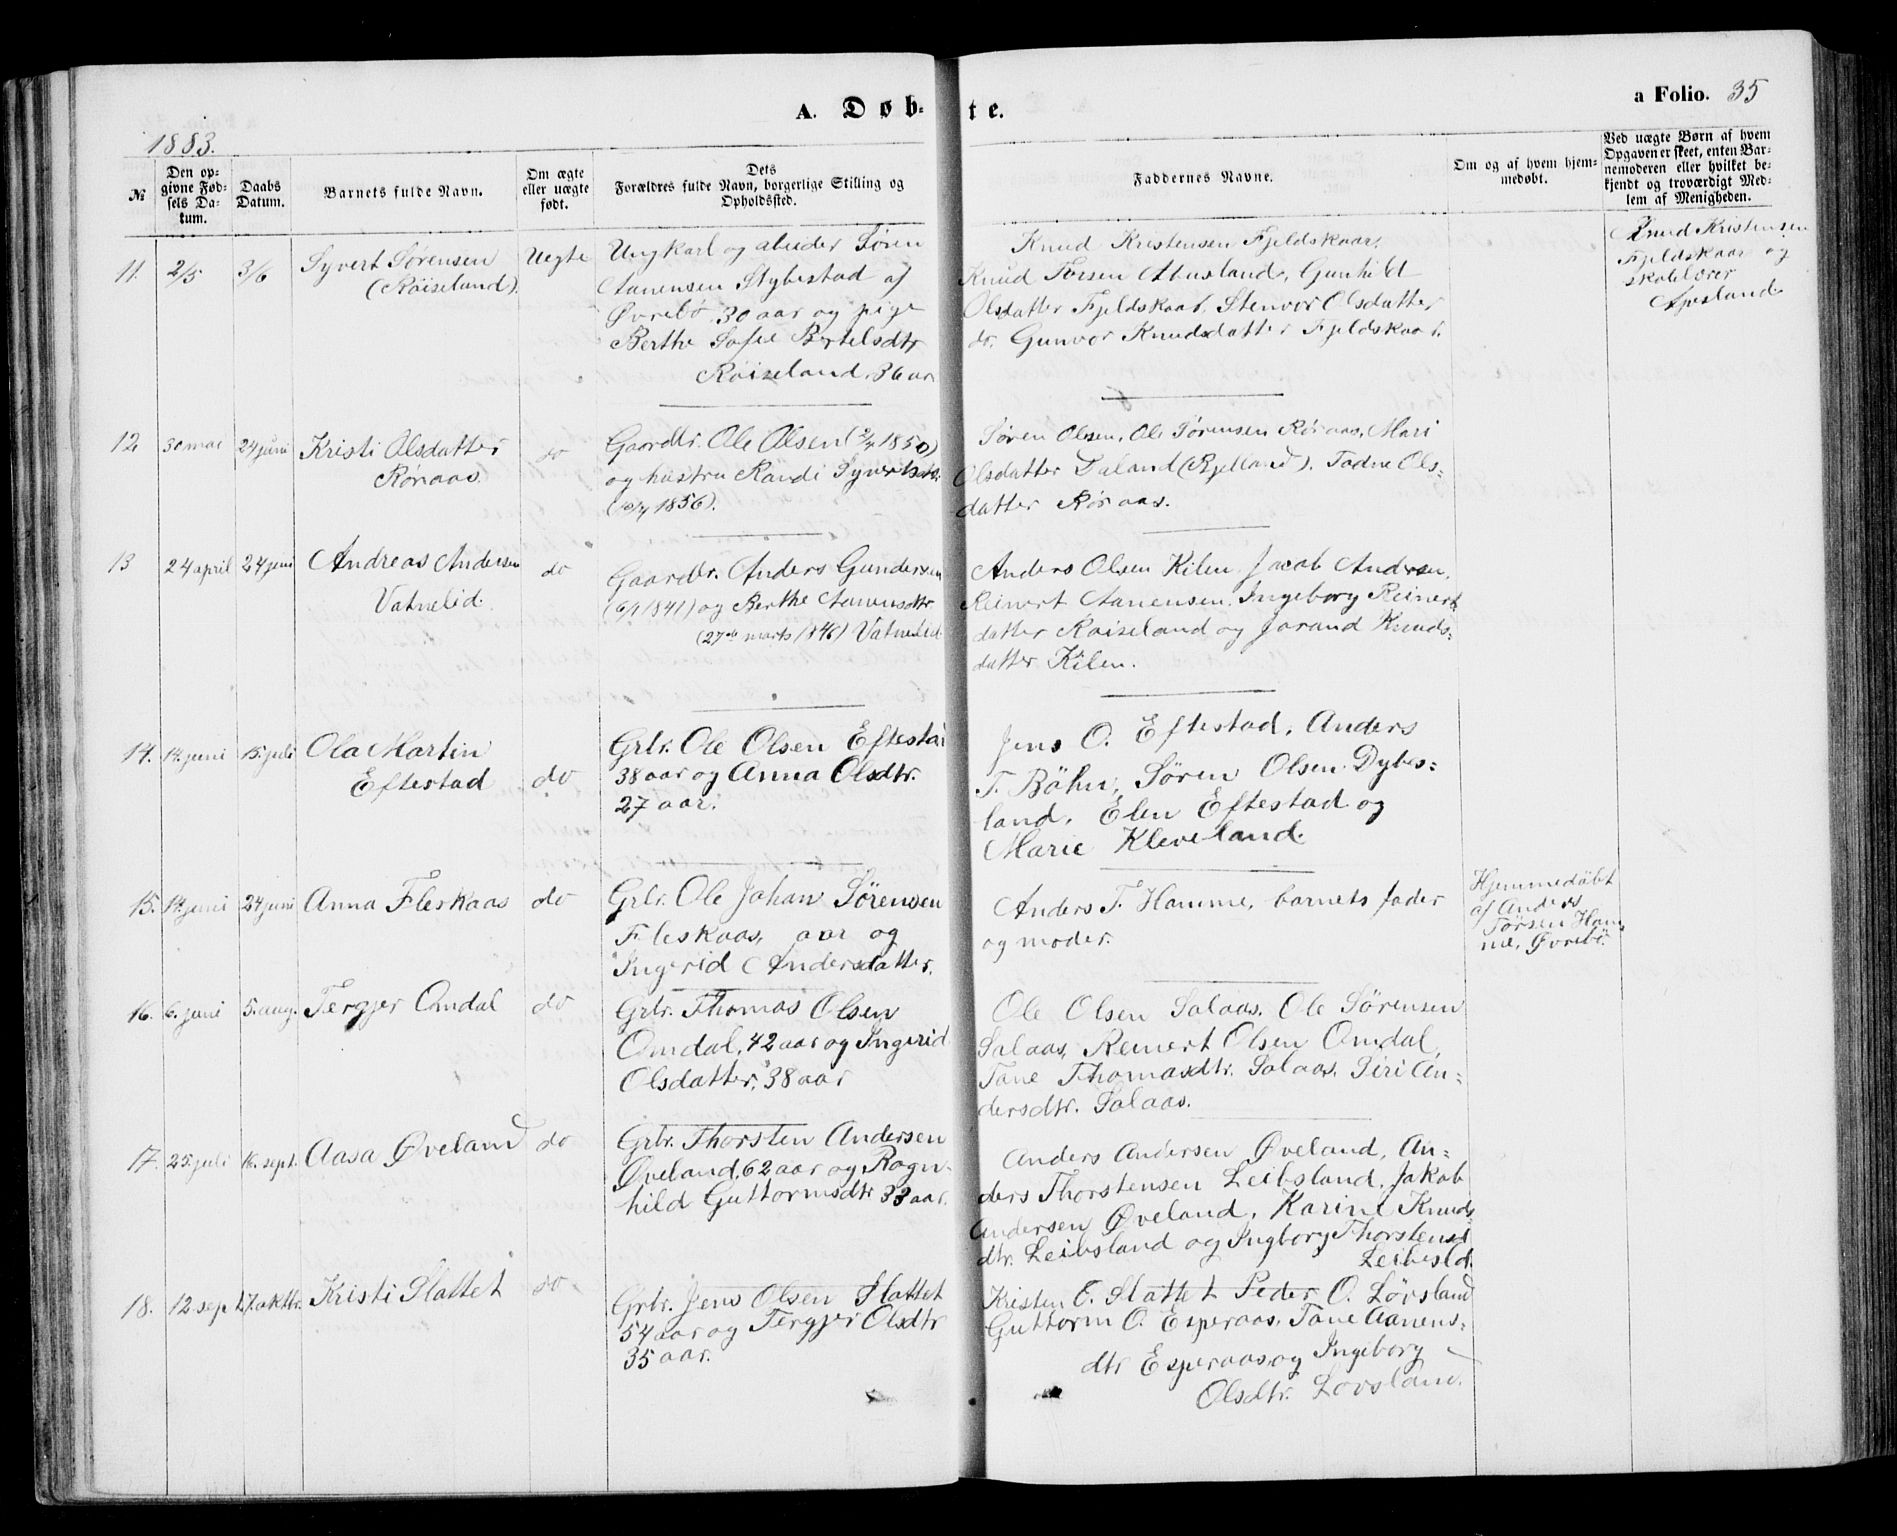 A. Døb-te.
a Folio. 35
1883.
№
Den opgivne Fødsels Datum.
Daabs Datum.
Barnets fulde Navn.
Om ægte eller uægte født.
Dets Forældres fulde Navn, borgerlige Stilling og Opholdssted.
Faddernes Navne.
Om og af hvem hjemmedøbt.
Ved uægte Børn af hvem Opgaven er skeet, enten Barnemoderen eller hvilket bekjendt og troværdigt Medlem af Menigheden.
11. 2/5 3/6
Syvert Sørensen
(Røiseland).
Uegte
Ungkarl og arbeider Søren
Aanensen Stybestad af
Øvrebø 30 aar og pige
Berthe Sofie Bertelsdtr
Røiseland, 36 aar
Knud Kristensen Fjeldskaar,
Knud Torsen Abusland, Gunhild
Olsdatter Fjeldskaar, Stenvor Olsdatter
do. Gunvor Knudsdatter Fjeldskaar.
Knud Kristensen
Fjeldskaar og
skolelærer
Apesland
12 30 mai 24 juni
Kristi Olsdatter
Røraas.
do
Gaardbr. Ole Olsen (2/4 1850)
og hustru Randi Syvertsdtr.
1856).
Søren Olsen, Ole Sørensen Røraas, Mari
Olsdatter Daland (Kjelland). Tadne Ols-
datter Røraas.
13 24 april 24 juni
Andreas Andersen
Vatnelid.
do
Gaardbr. Anders Gundersen
(6/1 1841) og Berthe Aanensdtr.
(27de marts 1846) Vatnelid
Anders Olsen Kilen, Jacob Andersen,
Reinert Aanensen, Ingeborg Reinerts
datter Røiseland og Jorand Knuds-
datter Kilen.
14. 14. juni 15. juli
Ola Martin
Eftestad
do
Grbr. Ole Olsen Eftestad
38 aar og Anna Olsdtr.
27 aar.
Jens O. Eftestad, Anders
T. Bøhn, Søren Olsen Dybes-
land, Elen Eftestad og
Marie Kleveland.
15. 14. juni 24 juni
Anna Fleskaas
do
Grbr. Ole Johan Sørensen
Fleskaas, aar og
Ingerid Andersdatter.
Anders T. Homme, barnets fader
og moder.
Hjemmedøbt
af Anders
Tørsen Hom-
me, Øvrebø.
16. 6. juni 5. aug.
Tergjer Omdal
do
Grbr. Thomas Olsen
Omdal, 42 aar og Ingerid
Olsdatter, 38 aar
Ole Olsen Salaas. Ole Sørensen
Salaas, Reinert Olsen Omdal,
Tane Thomasdtr. Salaas. Siri An-
dersdtr. Salaas.
17. 25. juli 16. sept.
Aasa Øveland
do
Grbr. Thorsten Andersen
Øveland, 62 aar og Ragn-
hild Guttormsdtr 33 aar.
Anders Andersen Øveland, An-
ders Thorstensen Leibsland, Jakob
Andersen Øveland, Karine Knuds-
dtr. Leibsland og Ingborg Thorstensd
Leibsld.
18. 12. sept 7. oktbr.
Kristi Slattet
do
Grbr. Jens Olsen Slattet
54 aar og Tergjer Olsdtr
35 aar.
Kristen O. Slattet Peder O. Løvsland
Guttorm O. Esperaas, Tane Aanens-
dtr Esperaas og Ingeborg
Olsdtr. Lovsland.